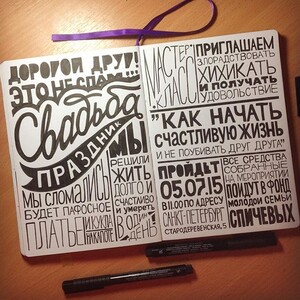 ДОРОГОЙ ДРУГ!
ЭТО НЕ СПАМ...
Свадьба
ПРАЗДНИК
МЫ
РЕШИЛИ
ЖИТЬ
ДОЛГО И
СЧАСТЛИВО
И УМЕРЕТЬ
В ОДИН
ДЕНЬ
МЫ СЛОМАЛИСЬ
БУДЕТ ПАФОСНОЕ
ПЛАТЬЕ
И КУКЛА
НА КАПОТЕ
МАСТЕР
КЛАСС
ПРИГЛАШАЕМ
ЗЛОРАДСТВОВАТЬ
ХИХИКАТЬ
И ПОЛУЧАТЬ
УДОВОЛЬСТВИЕ
"КАК НАЧАТЬ
СЧАСТЛИВУЮ ЖИЗНЬ
И НЕ ПОУБИВАТЬ ДРУГ ДРУГА"
ПРОЙДЕТ
05.07.15
В 11.00 ПО АДРЕСУ
САНКТ-ПЕТЕРБУРГ
СТАРОДЕРЕВЕНСКАЯ, 5
ВСЕ СРЕДСТВА
СОБРАННЫЕ
НА МЕРОПРИЯТИИ
ПОЙДУТ В ФОНД
МОЛОДОЙ СЕМЬИ
СПИЧЕВЫХ